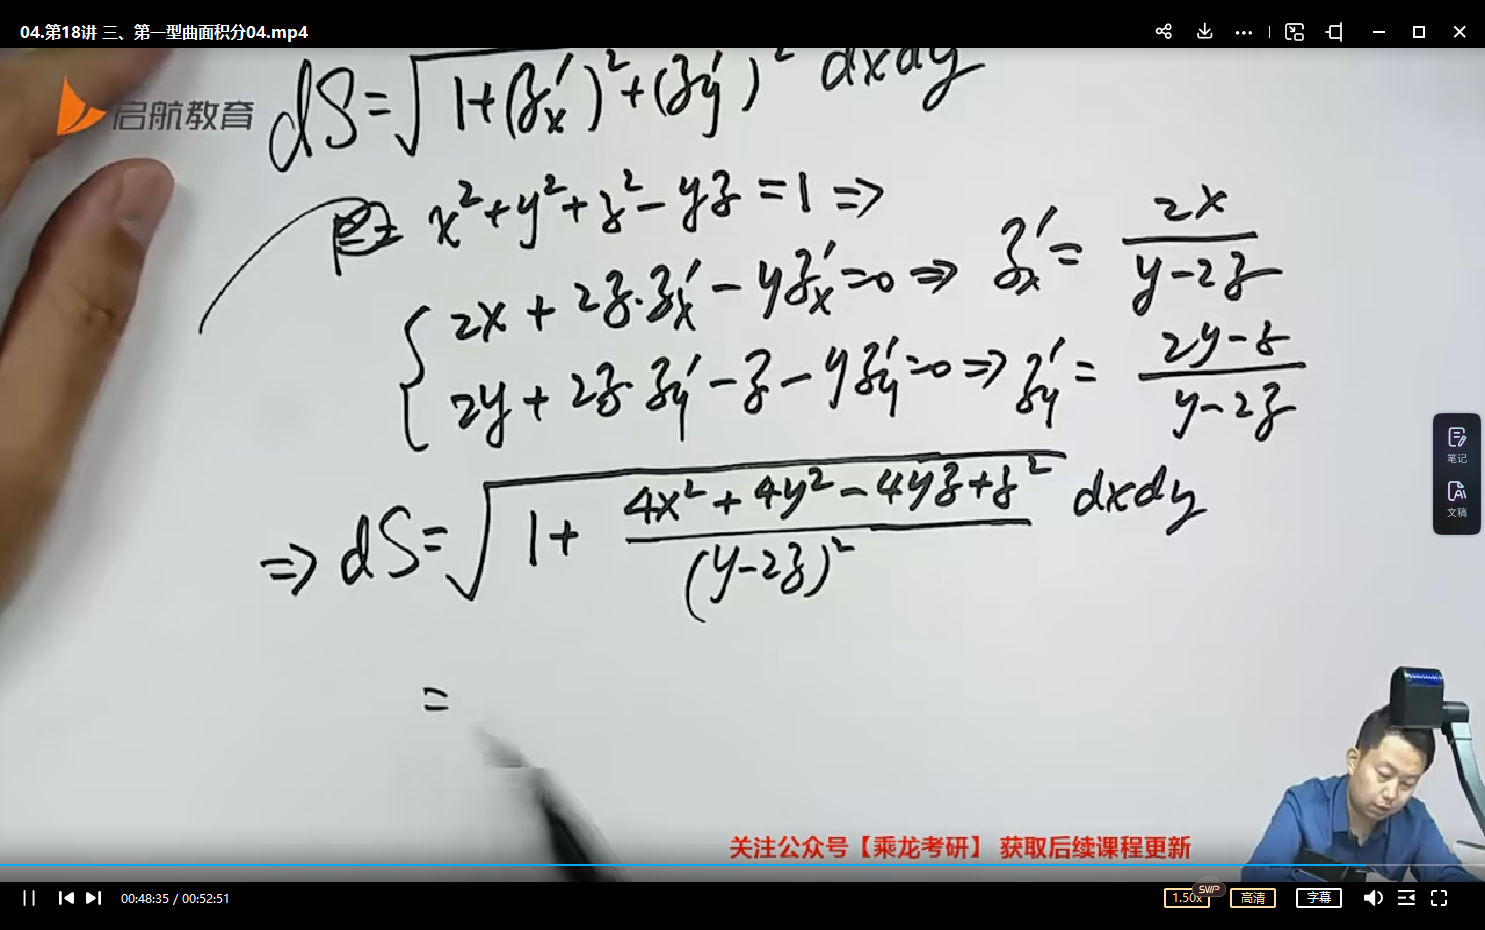 04.第18讲 三、第一型曲面积分04.mp4
启航教育
dS=√(1+(z'x)²+(z'y)²) dxdy
由 x²+y²+z²-yz=1 ⇒
2x+2z·z'x-yz'x=0 ⇒ z'x=2x/(y-2z)
2y+2z·z'y-z-yz'y=0 ⇒ z'y=(2y-z)/(y-2z)
⇒ dS=√(1+(4x²+4y²-4yz+z²)/(y-2z)²) dxdy
=
笔记
文稿
关注公众号【乘龙考研】 获取后续课程更新
00:48:35 / 00:52:51
1.50x
SVIP
高清
字幕